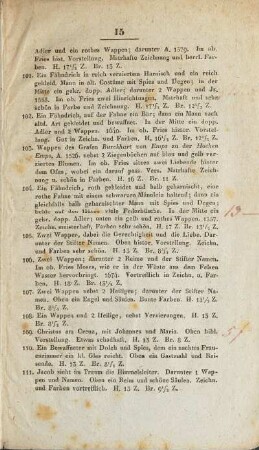 15
Adler und ein rothes Wappen; darunter A. 1579. Im ob.
Fries hist. Vorstellung. Meisterhafte Zeichnung und herrl. Farben.
H. 17½ Z. Br. 13 Z.
101. Ein Fähndrich in reich verziertem Harnisch und ein reich
gekleid. Mann in alt. Costüme mit Spies und Degen; in der
Mitte ein gekr. dopp. Adler; darunter 2 Wappen und Js.
1553. Im ob. Fries zwei Hinrichtungen. Meisterhaft und sehr
schön in Farbe und Zeichnung. H. 17¾ Z. Br. 12¾ Z.
102. Ein Fähndrich, auf der Fahne ein Bär; dann ein Mann nach
altd. Art gekleidet und bewaffnet. In der Mitte ein dopp.
Adler und 2 Wappen. 1610. Im ob. Fries histor. Vorstellung.
Gut in Zeichn. und Farben. H. 16½ Z. Br. 12¾ Z.
103. Wappen des Grafen Burckhart von Emps zu der Hochen
Emps, A. 1526. nebst 2 Ziegenböcken auf blau und gelb verziertem
Grund. Im ob. Fries sitzen zwei Liebende hinter
dem Ofen; wobei ein derauf pass. Vers. Meisterhafte Zeichnung
u. schön in Farben. H. 15 Z. Br. 11 Z.
104. Ein Fähndrich, roth gekleidet und halb geharnischt, eine
rothe Fahne mit einem schwarzen Mündlein haltend; dann ein
gleichfalls halb geharnischter Mann mit Spies und Degen;
beide auf den Hüten viele Federbüsche. In der Mitte ein
gekr. dopp. Adler; darunter ein gelb und rothes Wappen. 1587.
Zeichn. meisterhaft, Farben sehr schön. H. 17 Z. Br. 13 Z.
105. Zwei Wappen, dabei die Gerechtigkeit und die Liebe. Darunter
der Stifter Namen. Oben histor. Vorstellung. Zeichn.
und Farben sehr schön. H. 15 Z. Br. 10 Z.
106. Zwei Wappen; darunter 2 Reime und der Stifter Namen.
Im ob. Fries Moses, wie er in der Wüste aus dem Felsen
Wasser hervorbringt. 1673. Vortrefflich in Zeichn. u. Farben.
H. 13 Z. Br. 8½ Z.
107. Zwei Wappen nebst 2 Heiligen; darunter der Stifter Namen.
Oben ein Engel und Säulen. Bunte Farben. H. 13½ Z.
Br. 8½ Z.
108. Ein Wappen und 2 Heilige, nebst Verzierungen. H. 13 Z.
Br. 8 Z.
109. Christus am Creuz, mit Johannes und Maria. Oben bibl.
Vorstellung. Etwas schadhaft. H. 13 Z. Br. 8 Z.
110. Ein Bewaffneter mit Dolch und Spies, dem ein sechtes Frauenzimmer
ein kl. Glas reicht. Oben ein Gastmahl und
H. 13 Z. Br. 8½ Z.
111. Jacob sieht im Traum die Himmelsleiter. Darunter 1 Wappen
und Namen. Oben ein Reim und schöne Säulen. Zeichn.
und Farben vortrefflich. H. 13 Z. Br. 9½ Z.